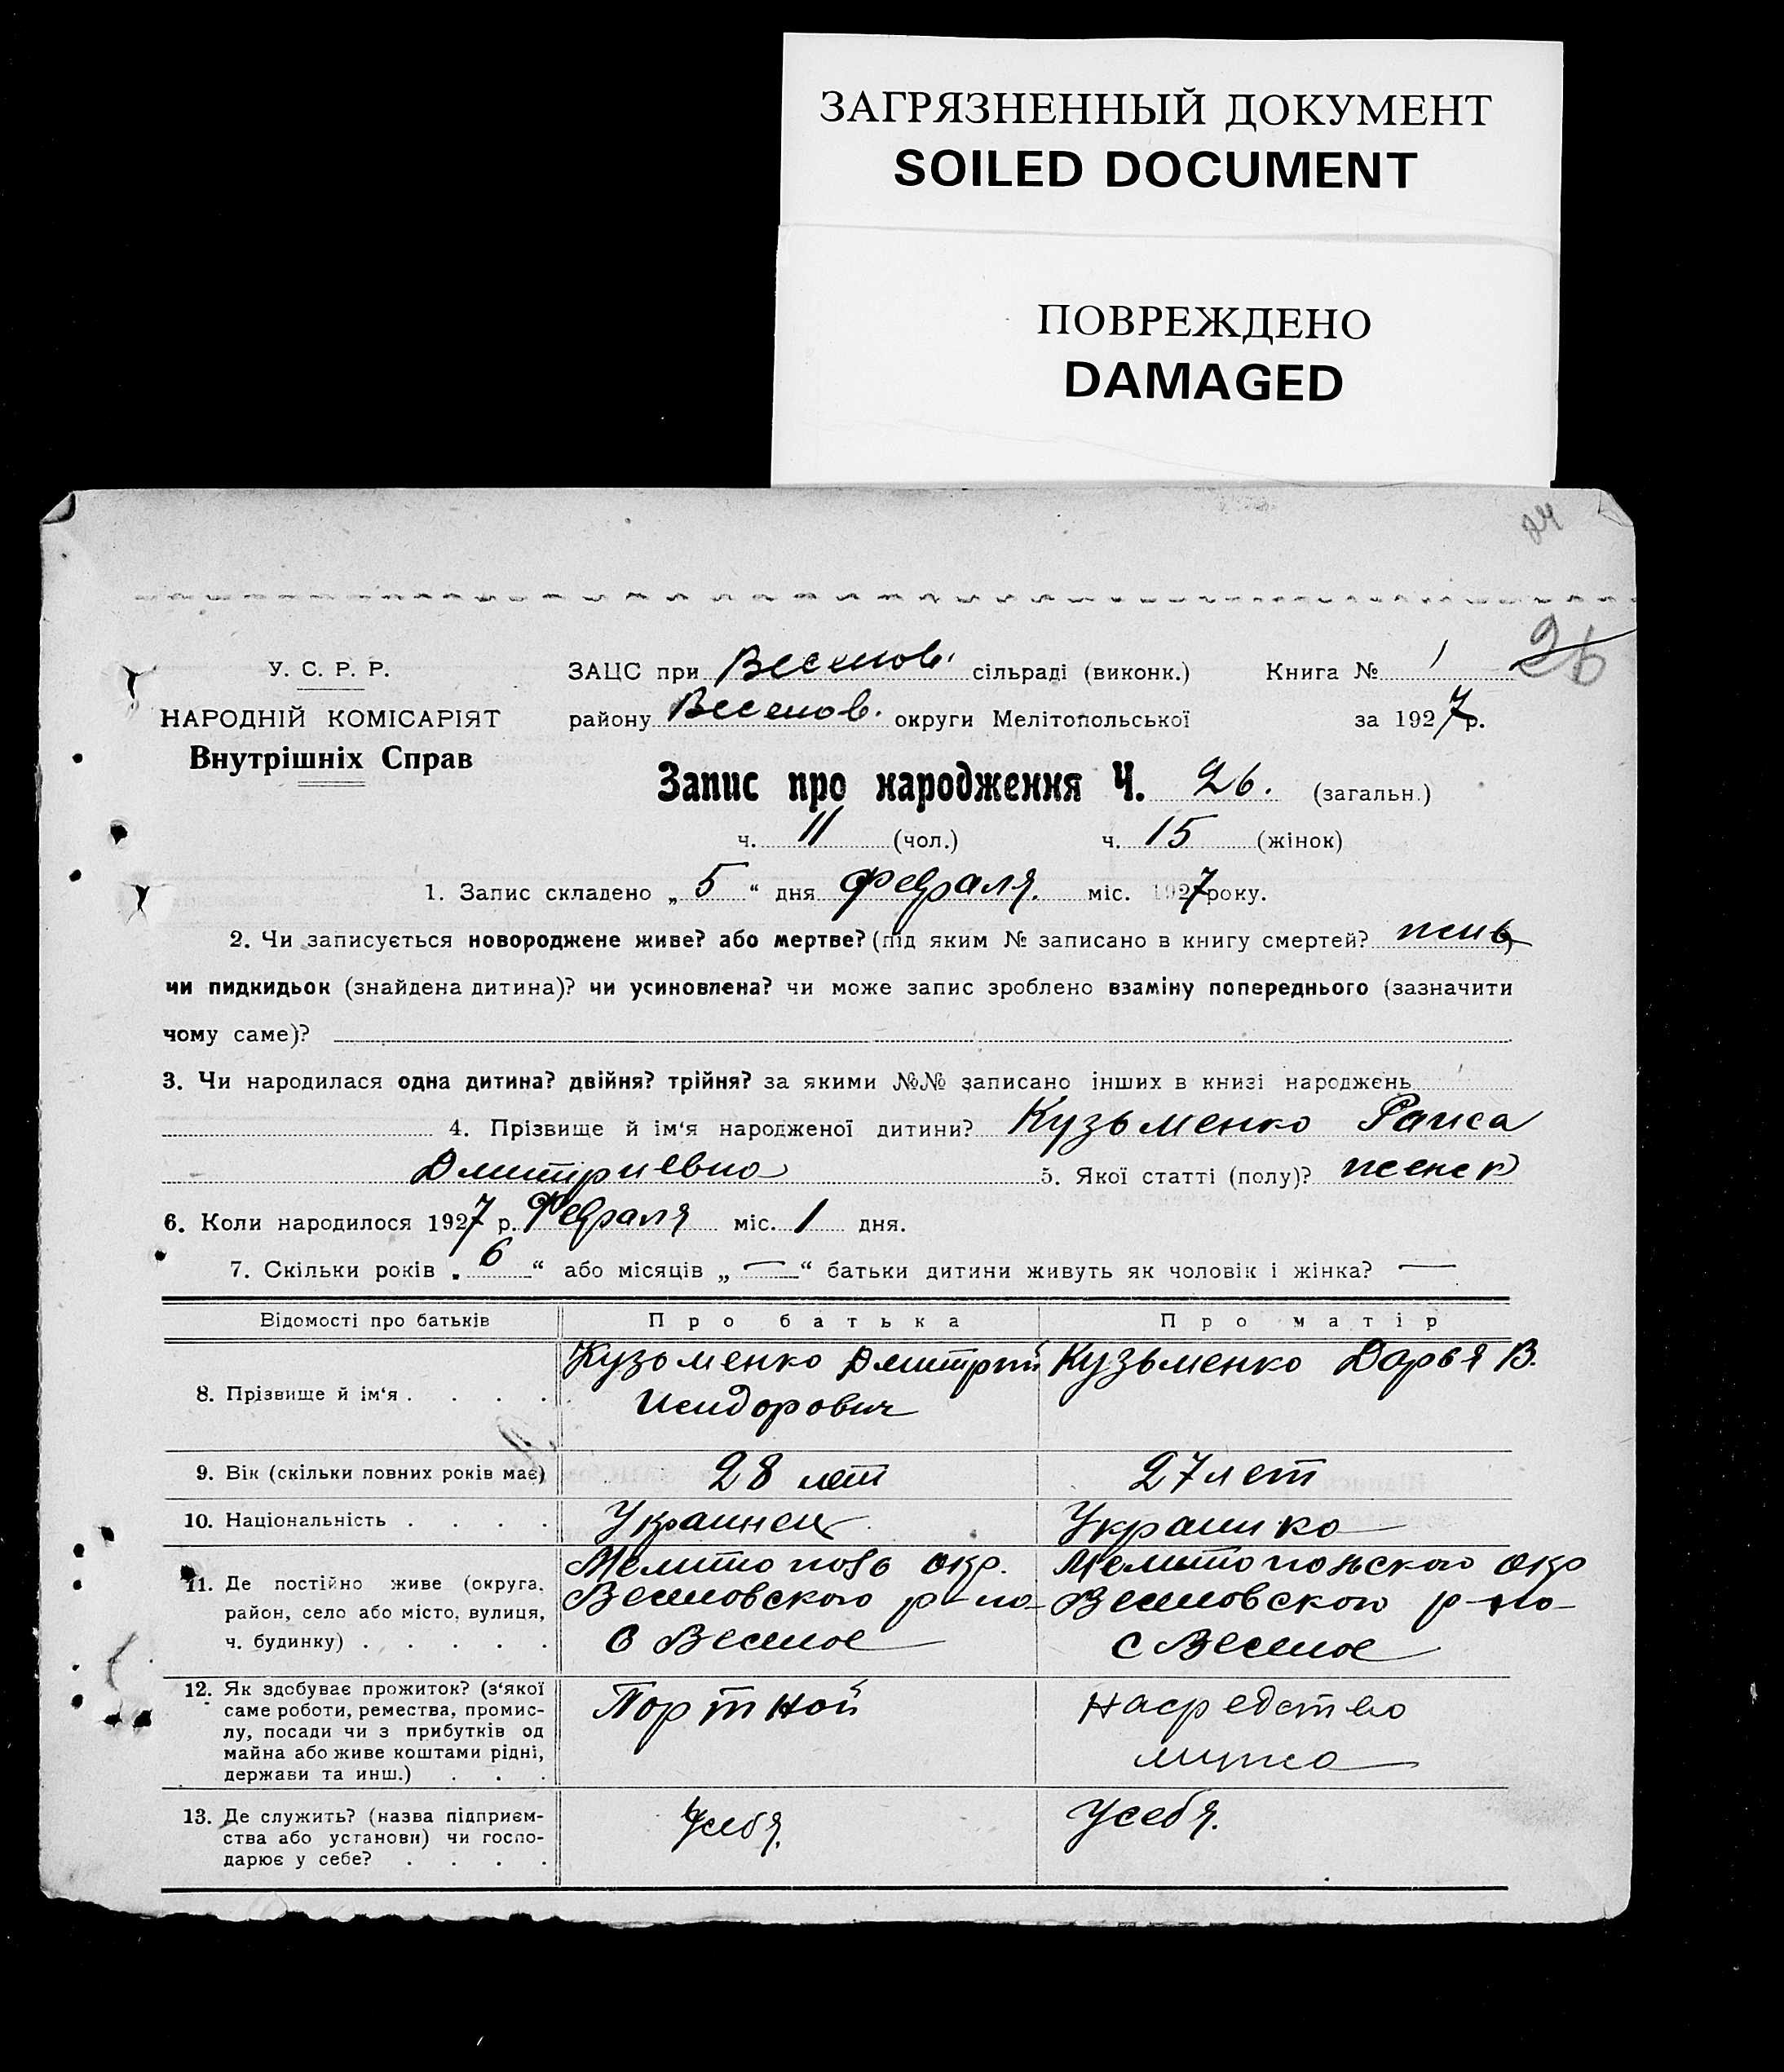 ЗАГРЯЗНЕННЫЙ ДОКУМЕНТ
SOILED DOCUMENT
ПОВРЕЖДЕНО
DAMAGED
24
26
У. С. Р. Р.
НАРОДНІЙ КОМІСАРІЯТ
Внутрішніх Справ
ЗАЦС при Веселов. сільраді (виконк.) Книга № 1
району Веселов. округи Мелітопольської за 1927 р.
Запис про народження Ч. 26. (загальн.)
ч. 11 (чол.) ч. 15 (жінок)
1. Запис складено „ 5 “ дня февраля. міс. 1927 року.
2. Чи записується новороджене живе? або мертве? (під яким № записано в книгу смертей?
чи пидкидьок (знайдена дитина)? чи усиновлена? чи може запис зроблено взаміну попереднього (зазначити
чому саме)?
3. Чи народилася одна дитина? двійня? трійня? за якими №№ записано інших в книзі народжень
4. Прізвище й ім‘я народженої дитини? Кузьменко Раиса
Дмитриевна 5. Якої статті (полу)? женск
6. Коли народилося 1927 р. Февраля міс. 1 дня.
7. Скільки років „ 6 “ або місяців „ — “ батьки дитини живуть як чоловік і жінка? —
Відомості про батьків Про батька Про матір
8. Прізвище й ім‘я . . . . Кузьменко Дмитрий Исидорович Кузьменко Дарья В.
9. Вік (скільки повних років має) 28 лет 27 лет
10. Національність . . . . Украинец Украинка
11. Де постійно живе (округа, Мелитополь окр. Мелитопольского окр
район, село або місто, вулиця, Веселовского р-на Веселовского р-на
ч. будинку) . . . . . с Веселое с Веселое
12. Як здобуває прожиток? (з‘якої Портной На средства
саме роботи, ремества, промис- мужа
лу, посади чи з прибутків од
майна або живе коштами рідні,
держави та инш.) . . .
13. Де служить? (назва підприєм- У себя. У себя.
ства або установи) чи госпо-
дарює у себе? . . . .